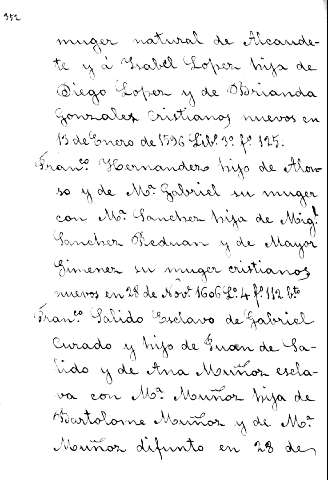 352
muger natural de Alcaude-
te y á Isabel Lopez hija de
Diego Lopez y de Brianda
Gonzalez cristianos nuevos en
13 de Enero de 1596 Lib.º 3º fº 125.
Fran.co Hernandez hijo de Alon-
so y de M.ª Gabriel su muger
con M.ª Sanchez hija de Mig.l
Sanchez Reduan y de Mayor
Gimenez su muger cristianos
nuevos en 28 de Nov.e 1606 L.º 4 fº 112 b.to
Fran.co Salido Esclavo de Gabriel
Curado y hijo de Juan de Sa-
lido y de Ana Muñoz escla-
va con M.ª Muñoz hija de
Bartolome Muñoz y de M.ª
Muñoz difunto en 28 de